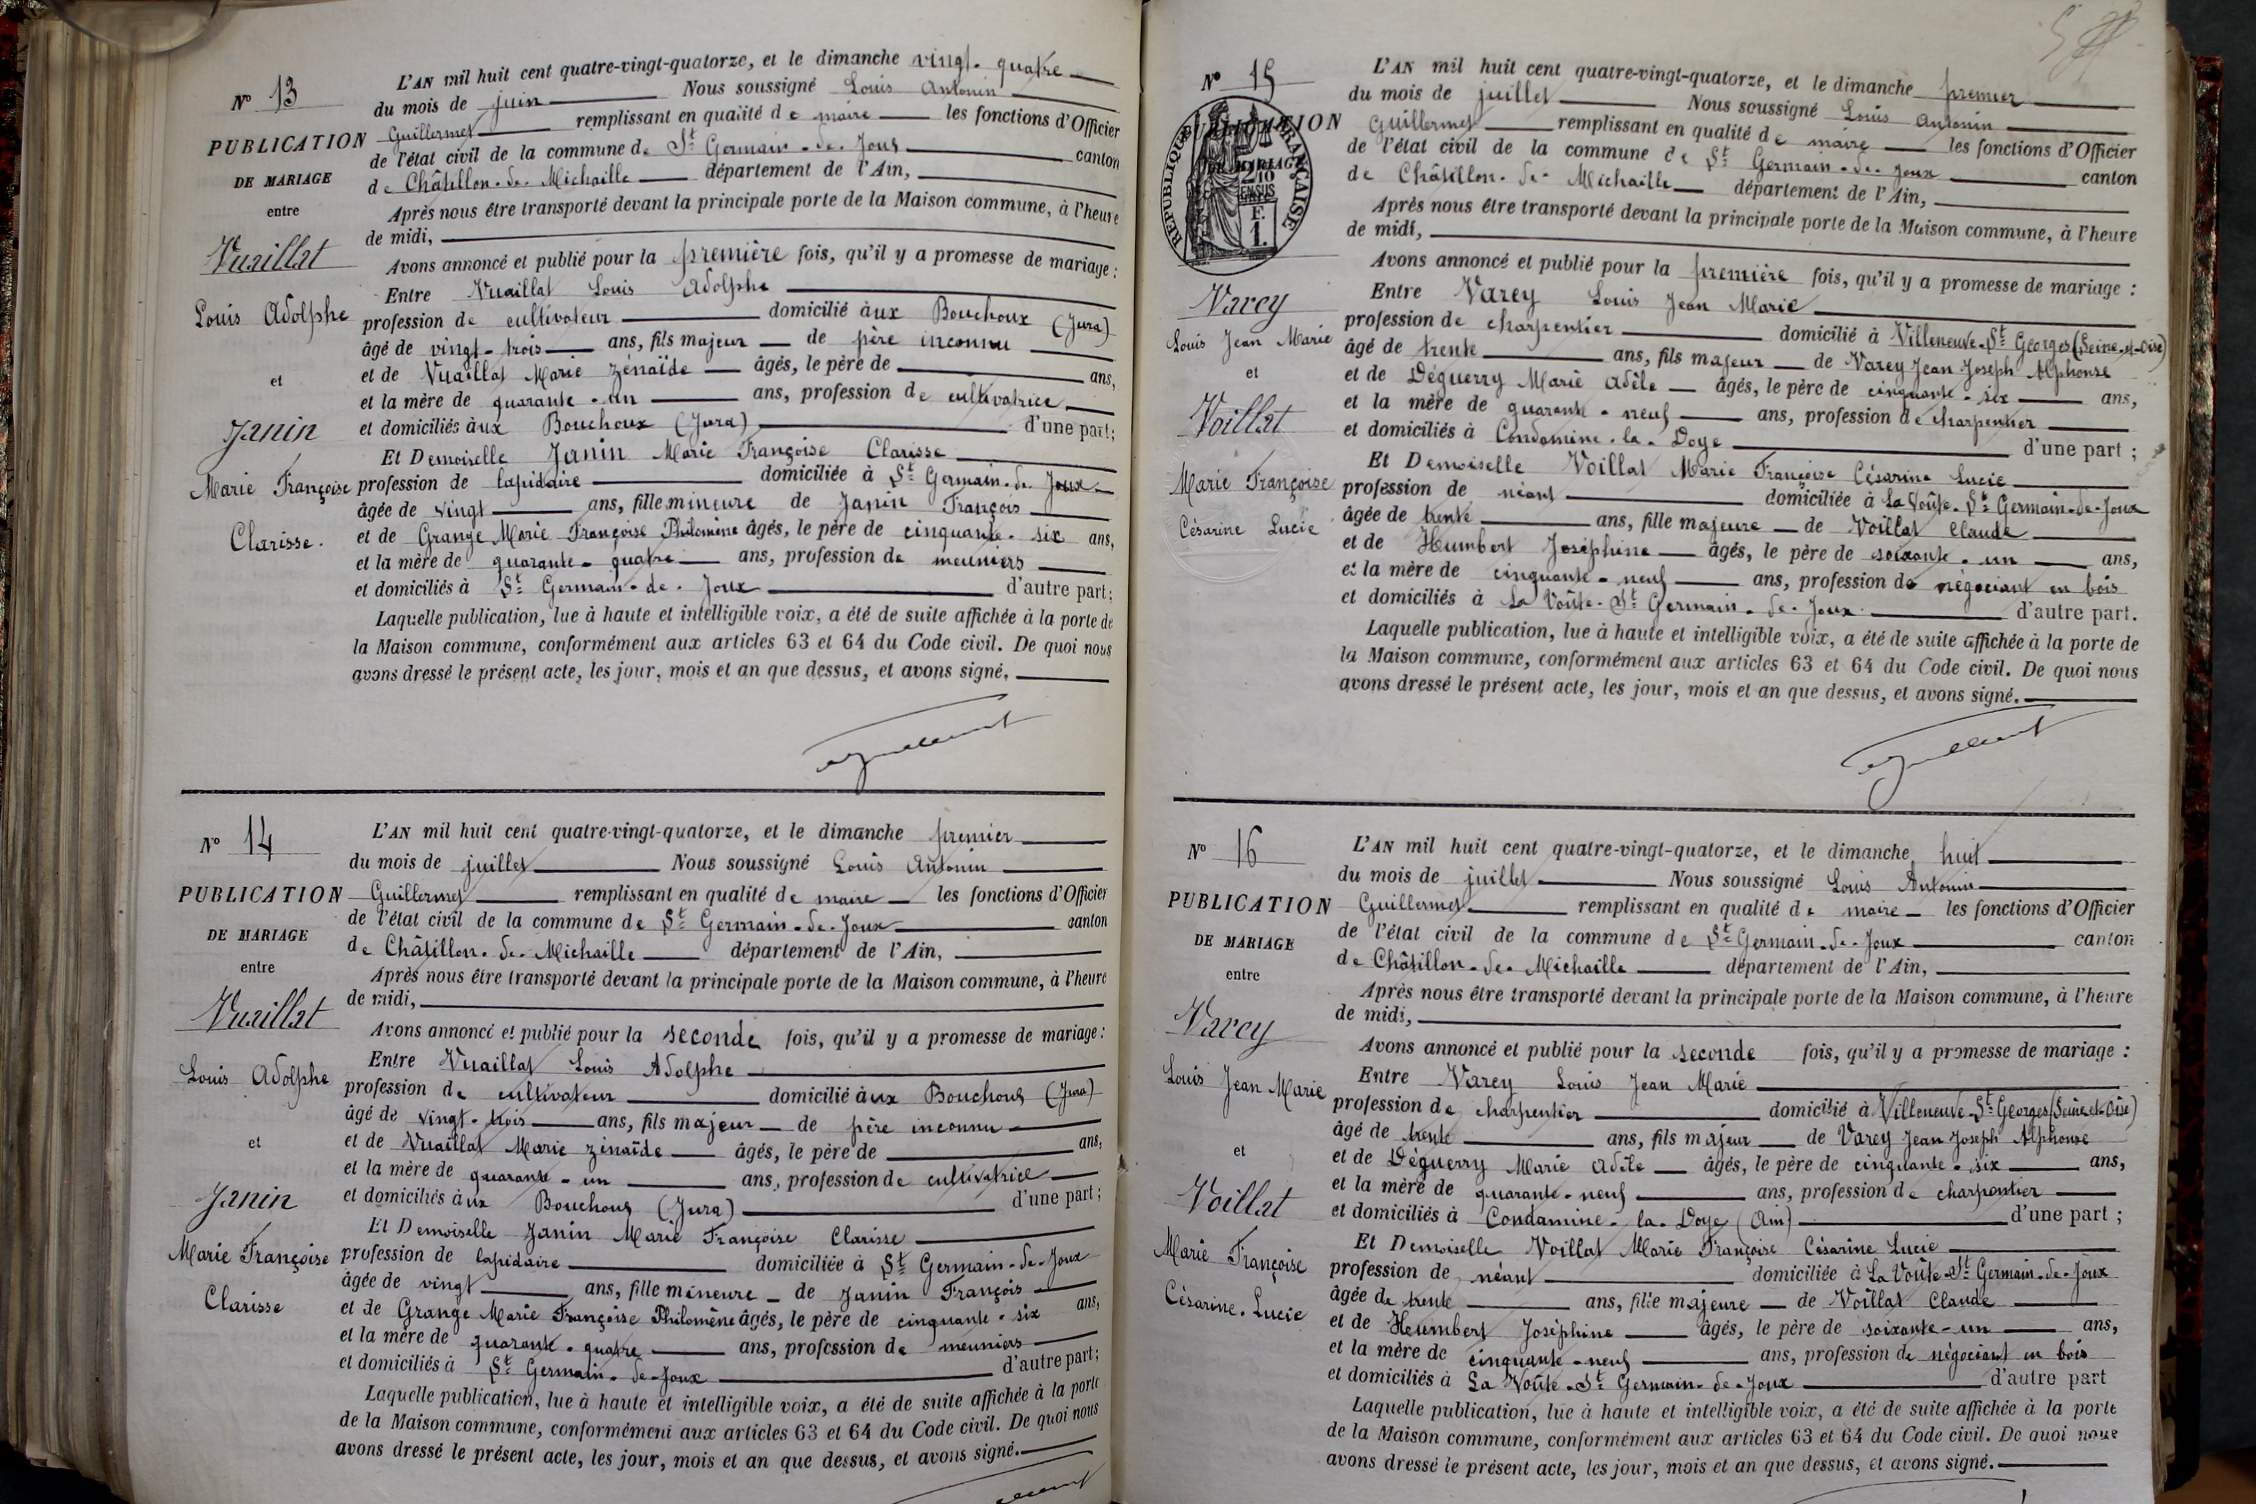 N° 13
PUBLICATION
DE MARIAGE
entre
Vuaillat
Louis Adolphe
et
Janin
Marie Françoise
Clarisse.
L'AN mil huit cent quatre-vingt-quatorze, et le dimanche vingt-quatre
du mois de juin Nous soussigné Louis Antonin
Guillermet remplissant en qualité de maire les fonctions d'Officier
de l'état civil de la commune de St Germain-de-Joux canton
de Châtillon-de-Michaille département de l'Ain,
Après nous être transporté devant la principale porte de la Maison commune, à l'heure
de midi,
Avons annoncé et publié pour la première fois, qu'il y a promesse de mariage :
Entre Vuaillat Louis Adolphe
profession de cultivateur domicilié àux Bouchoux (Jura)
âgé de vingt-trois ans, fils majeur de père inconnu
et de Vuaillat Marie Zénaïde âgés, le père de ans,
et la mère de quarante-un ans, profession de cultivatrice
et domiciliés àux Bouchoux (Jura) d'une part;
Et Demoiselle Janin Marie Françoise Clarisse
profession de lapidaire domiciliée à St Germain-de-Joux
âgée de vingt ans, fille mineure de Janin François
et de Grange Marie Françoise Philomène âgés, le père de cinquante-six ans,
et la mère de quarante-quatre ans, profession de meuniers
et domiciliés à St Germain-de-Joux d'autre part;
Laquelle publication, lue à haute et intelligible voix, a été de suite affichée à la porte de
la Maison commune, conformément aux articles 63 et 64 du Code civil. De quoi nous
avons dressé le présent acte, les jour, mois et an que dessus, et avons signé.
N° 14
PUBLICATION
DE MARIAGE
entre
Vuaillat
Louis Adolphe
et
Janin
Marie Françoise
Clarisse
L'AN mil huit cent quatre-vingt-quatorze, et le dimanche premier
du mois de juillet Nous soussigné Louis Antonin
Guillermet remplissant en qualité de maire les fonctions d'Officier
de l'état civil de la commune de St Germain-de-Joux canton
de Châtillon-de-Michaille département de l'Ain,
Après nous être transporté devant la principale porte de la Maison commune, à l'heure
de midi,
Avons annoncé et publié pour la seconde fois, qu'il y a promesse de mariage :
Entre Vuaillat Louis Adolphe
profession de cultivateur domicilié àux Bouchoux (Jura)
âgé de vingt-trois ans, fils majeur de père inconnu
et de Vuaillat Marie Zénaïde âgés, le père de ans,
et la mère de quarante-un ans, profession de cultivatrice
et domiciliés àux Bouchoux (Jura) d'une part;
Et Demoiselle Janin Marie Françoise Clarisse
profession de lapidaire domiciliée à St Germain-de-Joux
âgée de vingt ans, fille mineure de Janin François
et de Grange Marie Françoise Philomène âgés, le père de cinquante-six ans,
et la mère de quarante-quatre ans, profession de meuniers
et domiciliés à St Germain-de-Joux d'autre part;
Laquelle publication, lue à haute et intelligible voix, a été de suite affichée à la porte
de la Maison commune, conformément aux articles 63 et 64 du Code civil. De quoi nous
avons dressé le présent acte, les jour, mois et an que dessus, et avons signé.
N° 15
PUBLICATION
DE MARIAGE
RÉPUBLIQUE FRANÇAISE
2/10
EN SUS
F.
1.
Varey
Louis Jean Marie
et
Voillat
Marie Françoise
Césarine Lucie
L'AN mil huit cent quatre-vingt-quatorze, et le dimanche premier
du mois de juillet Nous soussigné Louis Antonin
Guillermet remplissant en qualité de maire les fonctions d'Officier
de l'état civil de la commune de St Germain-de-Joux canton
de Châtillon-de-Michaille département de l'Ain,
Après nous être transporté devant la principale porte de la Maison commune, à l'heure
de midi,
Avons annoncé et publié pour la première fois, qu'il y a promesse de mariage :
Entre Varey Louis Jean Marie
profession de charpentier domicilié à Villeneuve-St Georges (Seine-et-Oise)
âgé de trente ans, fils majeur de Varey Jean Joseph Alphonse
et de Déguerry Marie Adèle âgés, le père de cinquante-six ans,
et la mère de quarante-neuf ans, profession de charpentier
et domiciliés à Condamine-la-Doye d'une part ;
Et Demoiselle Voillat Marie Françoise Césarine Lucie
profession de néant domiciliée à La Voûte-St Germain-de-Joux
âgée de trente ans, fille majeure de Voillat Claude
et de Humbert Joséphine âgés, le père de soixante-un ans,
et la mère de cinquante-neuf ans, profession de négociant en bois
et domiciliés à La Voûte-St Germain-de-Joux d'autre part.
Laquelle publication, lue à haute et intelligible voix, a été de suite affichée à la porte de
la Maison commune, conformément aux articles 63 et 64 du Code civil. De quoi nous
avons dressé le présent acte, les jour, mois et an que dessus, et avons signé.
N° 16
PUBLICATION
DE MARIAGE
entre
Varey
Louis Jean Marie
et
Voillat
Marie Françoise
Césarine-Lucie
L'AN mil huit cent quatre-vingt-quatorze, et le dimanche huit
du mois de juillet Nous soussigné Louis Antonin
Guillermet remplissant en qualité de maire les fonctions d'Officier
de l'état civil de la commune de St Germain-de-Joux canton
de Châtillon-de-Michaille département de l'Ain,
Après nous être transporté devant la principale porte de la Maison commune, à l'heure
de midi,
Avons annoncé et publié pour la seconde fois, qu'il y a promesse de mariage :
Entre Varey Louis Jean Marie
profession de charpentier domicilié à Villeneuve-St Georges (Seine-et-Oise)
âgé de trente ans, fils majeur de Varey Jean Joseph Alphonse
et de Déguerry Marie Adèle âgés, le père de cinquante-six ans,
et la mère de quarante-neuf ans, profession de charpentier
et domiciliés à Condamine-la-Doye (Ain) d'une part ;
Et Demoiselle Voillat Marie Françoise Césarine Lucie
profession de néant domiciliée à La Voûte-St Germain-de-Joux
âgée de trente ans, fille majeure de Voillat Claude
et de Humbert Joséphine âgés, le père de soixante-un ans,
et la mère de cinquante-neuf ans, profession de négociant en bois
et domiciliés à La Voûte-St Germain-de-Joux d'autre part
Laquelle publication, lue à haute et intelligible voix, a été de suite affichée à la porte
de la Maison commune, conformément aux articles 63 et 64 du Code civil. De quoi nous
avons dressé le présent acte, les jour, mois et an que dessus, et avons signé.